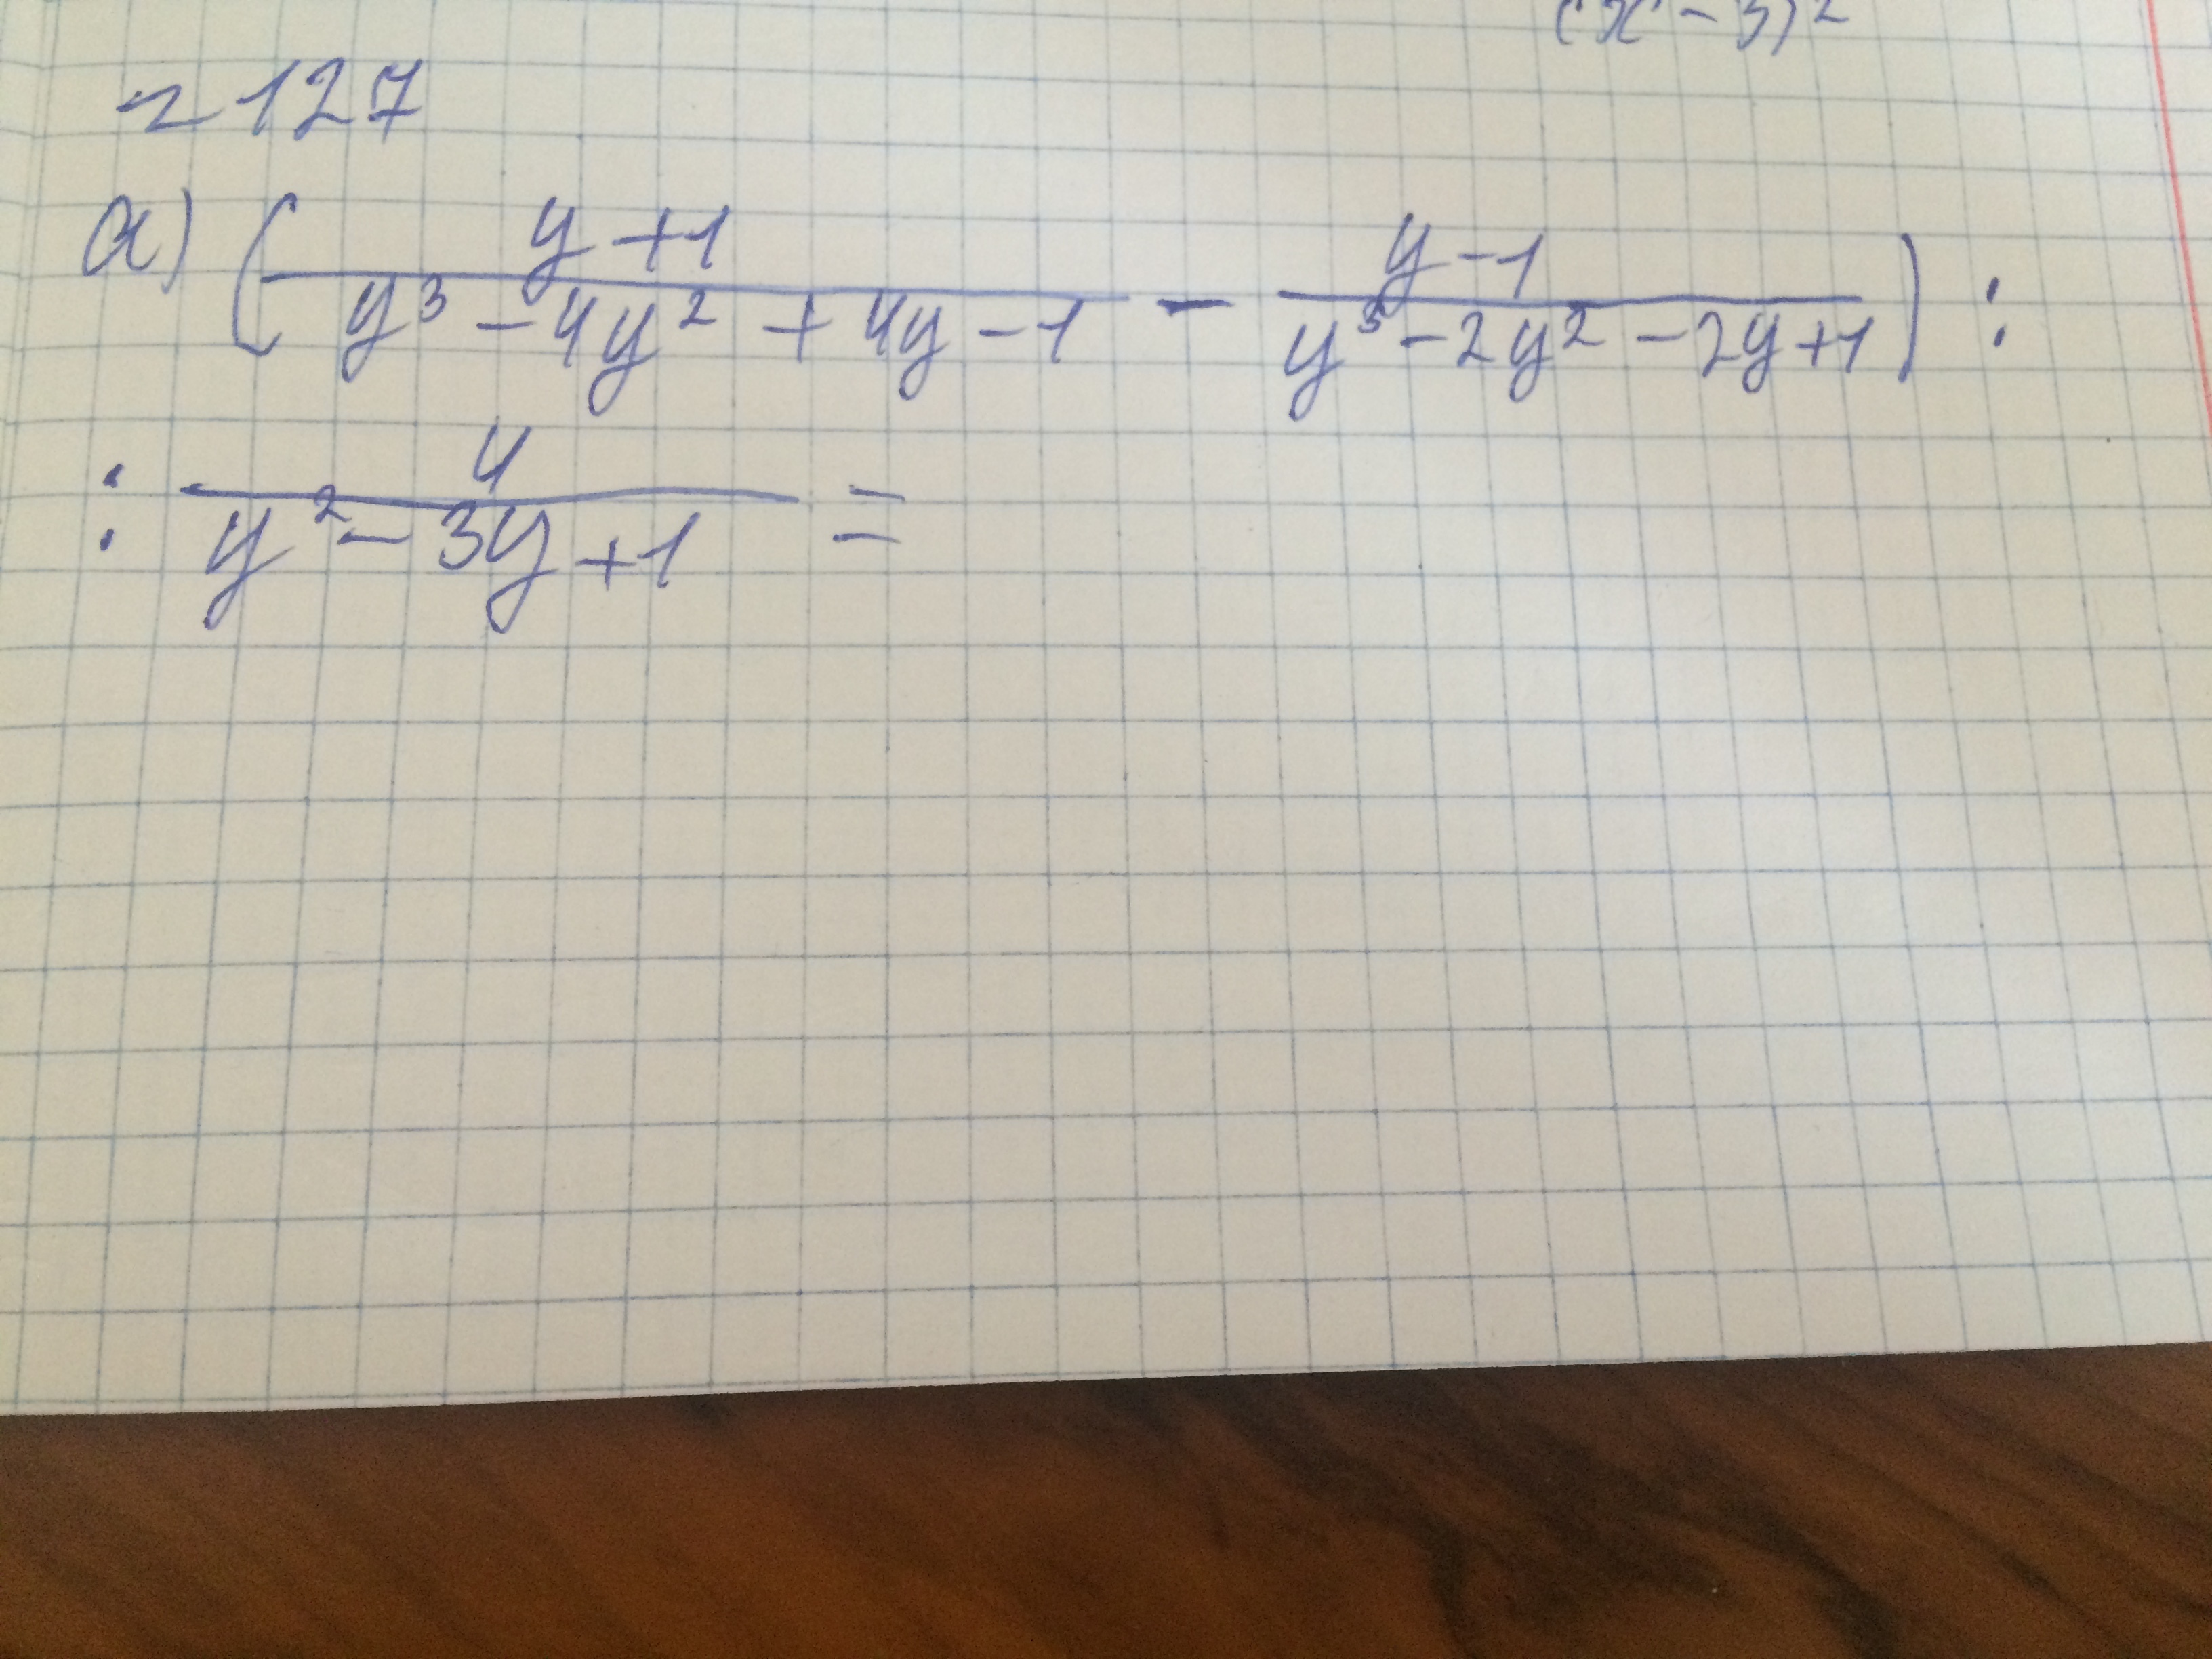 (x-3)²
~127
а) ( y+1 / y³-4y²+4y-1 - y-1 / y³-2y²-2y+1 ) :
: 4 / y²-3y+1 =